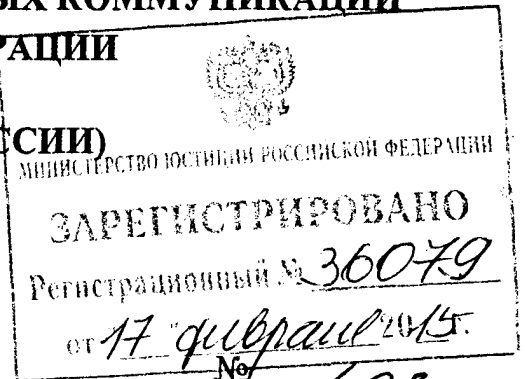 ЫХ КОММУНИКАЦИЙ
РАЦИИ
ССИИ)
МИНИСТЕРСТВО ЮСТИЦИИ РОССИЙСКОЙ ФЕДЕРАЦИИ
ЗАРЕГИСТРИРОВАНО
Регистрационный № 36079
от "17" февраля 2015г.
№